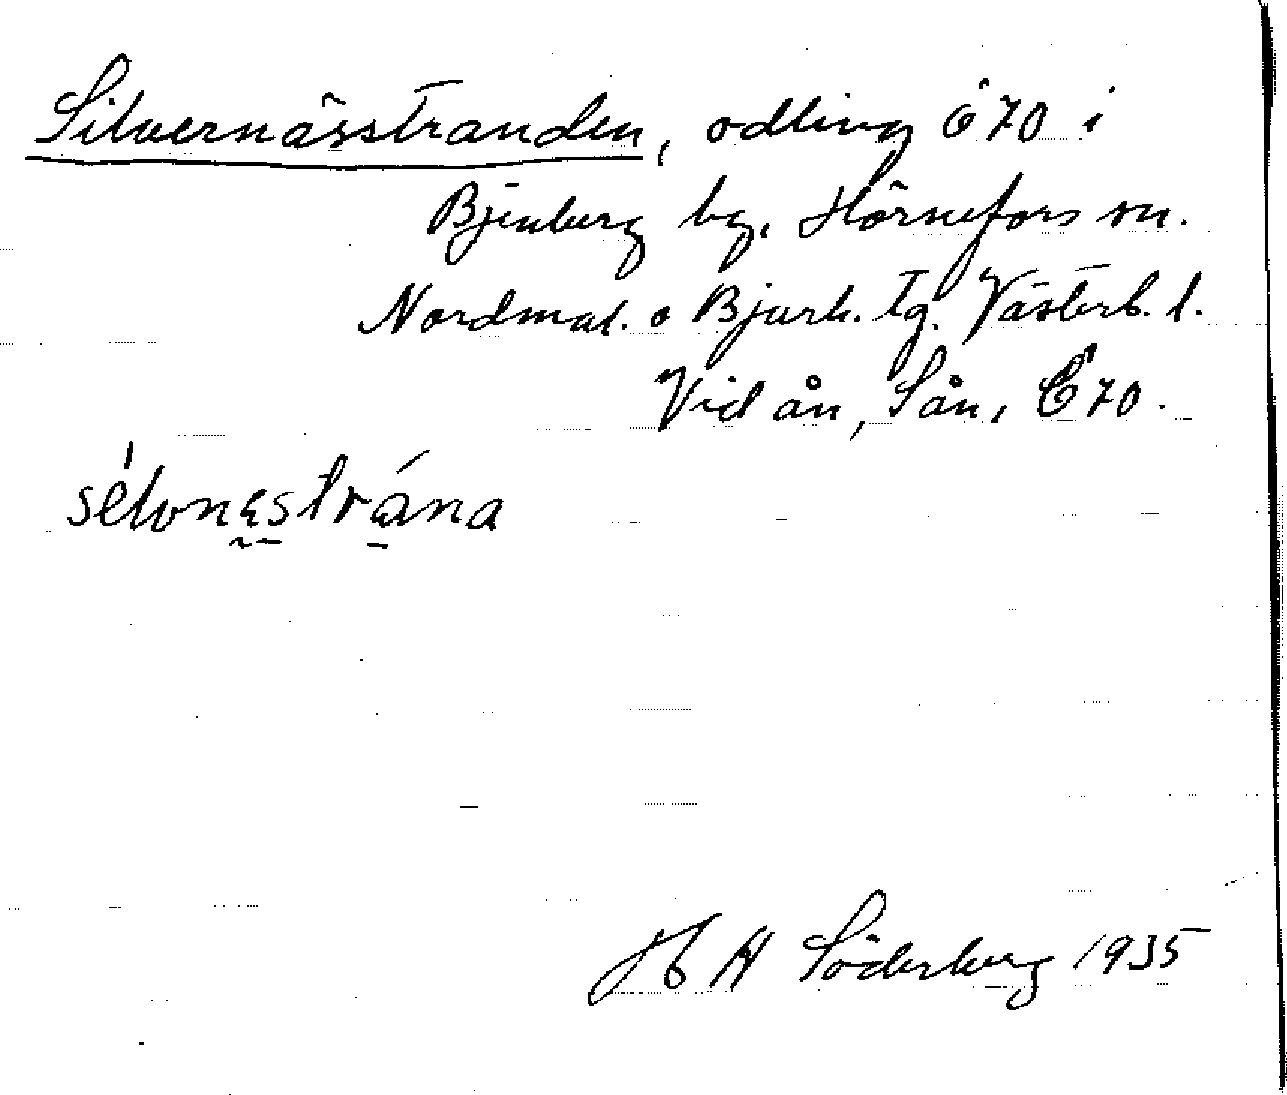 Silvernässtranden, odling C 70 i
Bjenberg bg, Hörnefors sn.
Nordmal. o Bjurh. tg. Västerb. l.
Vid ån, Sån, C 70.
selvnęstrána
H Söderberg 1935